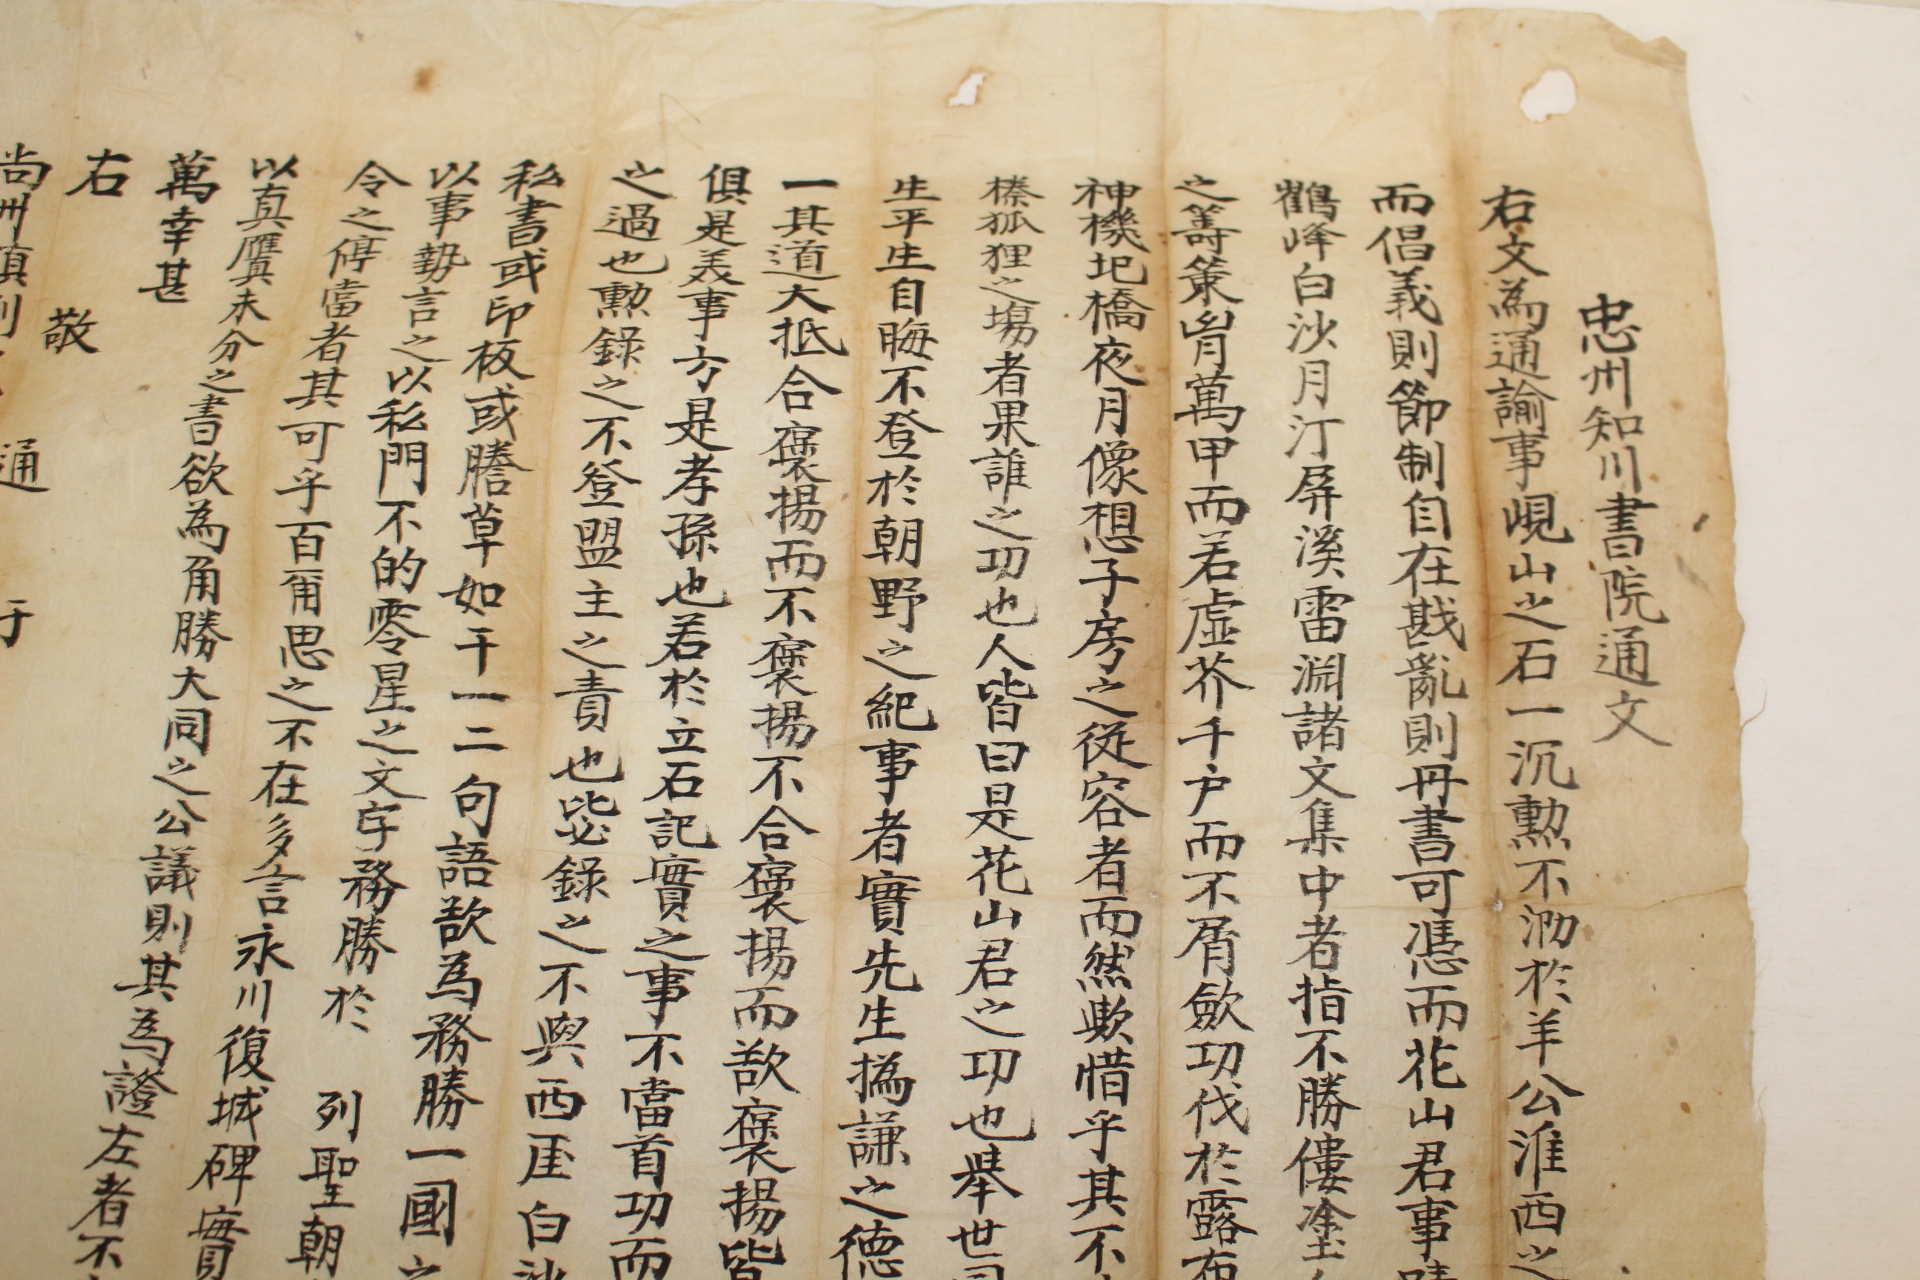 忠州知川書院通文
右文為通諭事峴山之石一沉勲不泐於羊公淮西之
而倡義則節制自在戡亂則丹書可憑而花山君事
鶴峰白沙月汀屏溪雷淵諸文集中者指不勝僂塗
之籌策胷萬甲而若虛芥千户而不屑歛功伐於露布
神機圯橋夜月像想子房之從容者而然歟惜乎其不
榛狐狸之塲者果誰之功也人皆曰是花山君之功也舉世
生平生自晦不登於朝野之紀事者實先生撝謙之德
一其道大抵合褒揚而不褒揚不合褒揚而歆褒揚皆
俱是美事方是孝孫也若於立石記實之事不當首功而
之過也勲錄之不登盟主之責也毖錄之不與西厓白沙
私書或印板或謄草如干一二句語歆為務勝一國之
以事勢言之以私門不的零星之文字務勝於 列聖朝
令之停當者其可乎百爾思之不在多言永川復城碑實
以真贋未分之書欲為角勝大同之公議則其為證左者不
萬幸甚
右 敬 通 于
尚州鎮